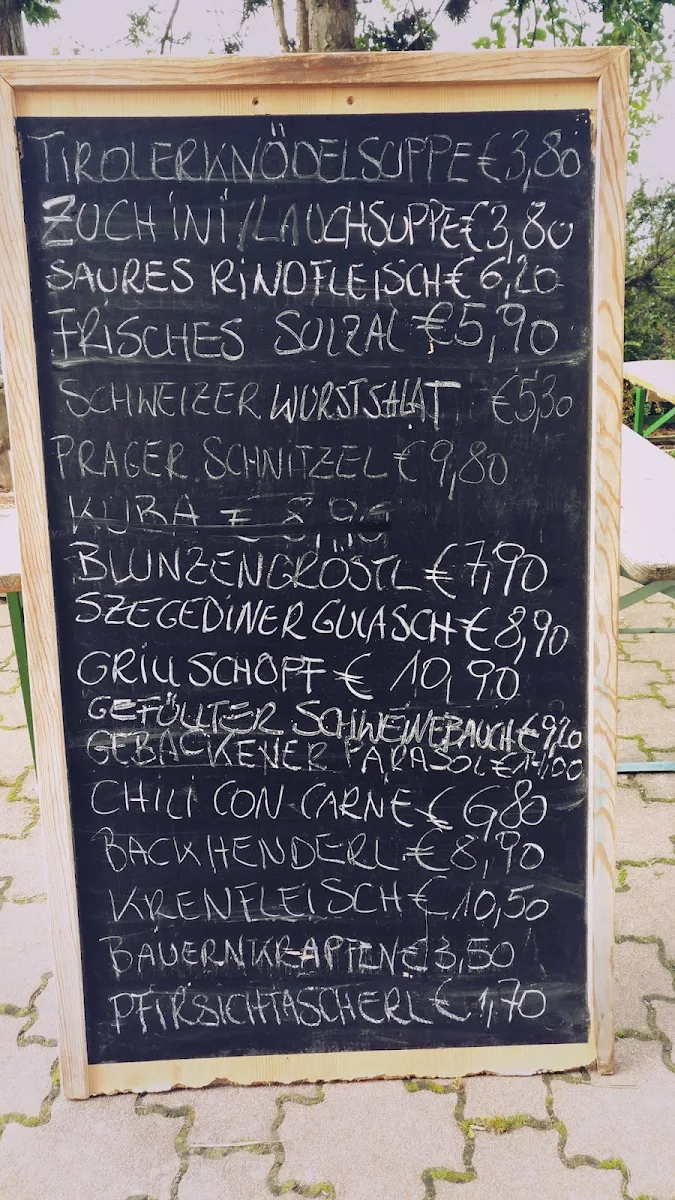 TIROLERKNÖDELSUPPE € 3,80
ZUCHINI/LAUCHSUPPE € 3,80
SAURES RINDFLEISCH € 6,20
FRISCHES SULZAL € 5,90
SCHWEIZER WURSTSALAT € 5,30
PRAGER SCHNITZEL € 9,80
KUBA
BLUNZENGRÖSTL € 7,90
SZEGEDINER GULASCH € 8,90
GRILLSCHOPF € 10,90
GEFÜLLTER SCHWEINEBAUCH € 9,20
GEBACKENER PARASOL
CHILI CON CARNE € 6,80
BACKHENDERL € 8,90
KRENFLEISCH € 10,50
BAUERNKRAPFEN € 3,50
PFIRSICHTASCHERL € 1,70